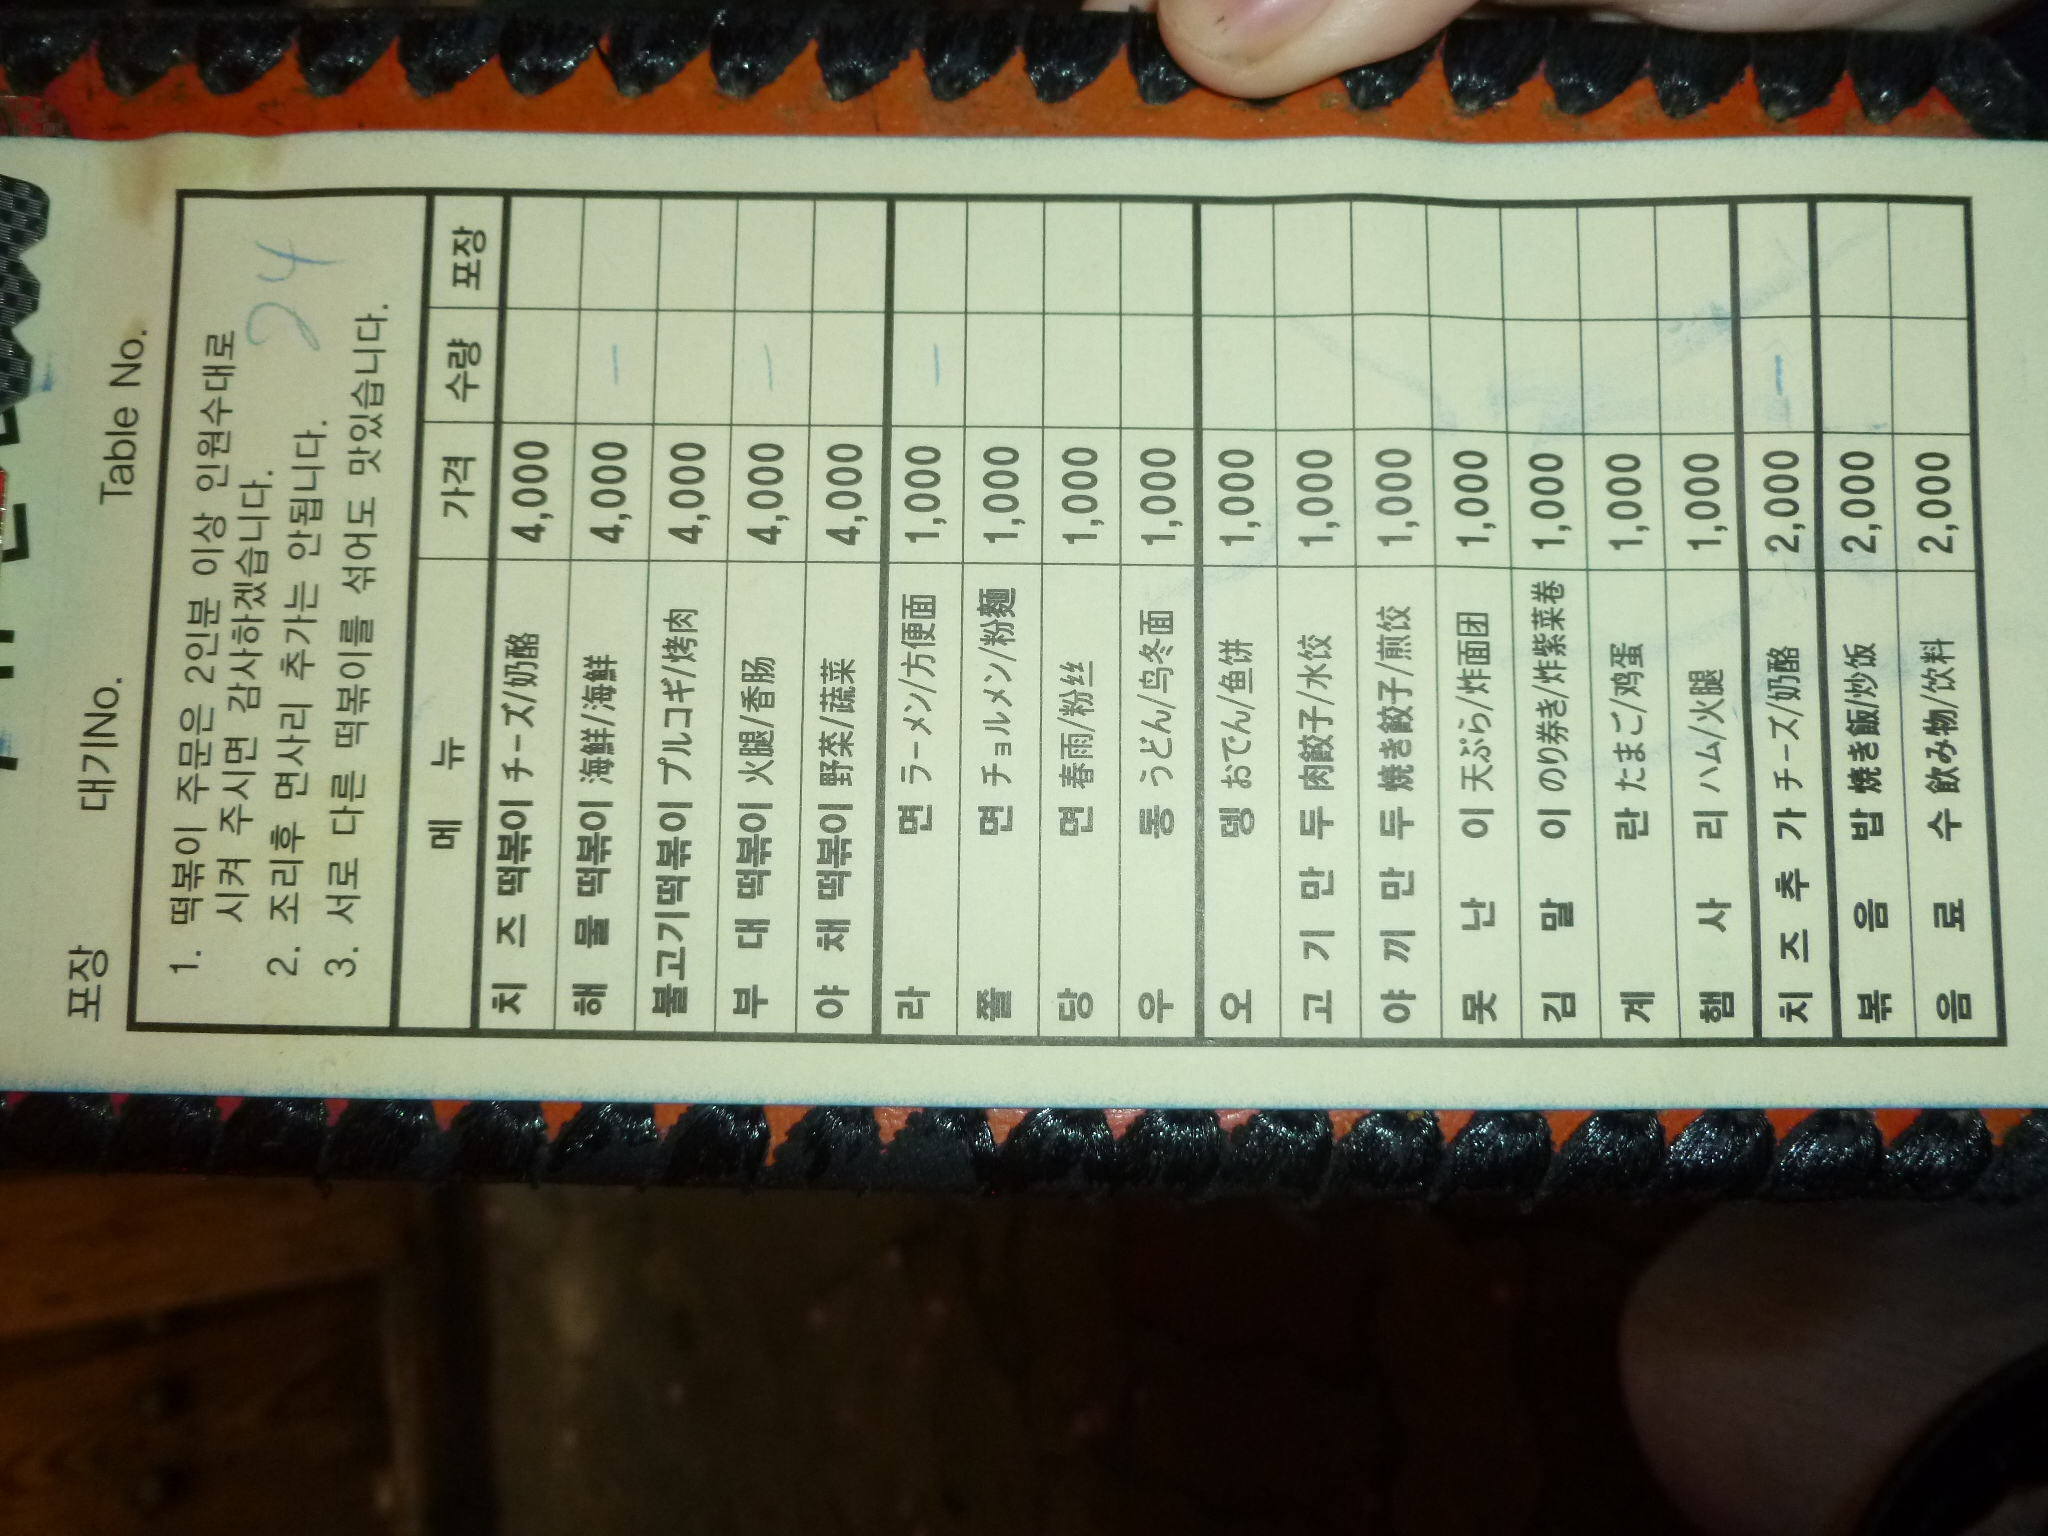 포장 대기No. Table No.
24
1. 떡볶이 주문은 2인분 이상 인원수대로
시켜 주시면 감사하겠습니다.
2. 조리후 면사리 추가는 안됩니다.
3. 서로 다른 떡볶이를 섞어도 맛있습니다.
메 뉴 가격 수량 포장
치 즈 떡볶이 チーズ/奶酪 4,000
해 물 떡볶이 海鮮/海鮮 4,000 —
불고기떡볶이 プルコギ/烤肉 4,000
부 대 떡볶이 火腿/香肠 4,000 —
야 채 떡볶이 野菜/蔬菜 4,000
라 면 ラーメン/方便面 1,000 —
쫄 면 チョルメン/粉麵 1,000
당 면 春雨/粉丝 1,000
우 동 うどん/鸟冬面 1,000
오 뎅 おでん/鱼饼 1,000
고 기 만 두 肉餃子/水饺 1,000
야 끼 만 두 焼き餃子/煎饺 1,000
못 난 이 天ぷら/炸面团 1,000
김 말 이 のり券き/炸紫菜卷 1,000
계 란 たまご/鸡蛋 1,000
햄 사 리 ハム/火腿 1,000
치 즈 추 가 チーズ/奶酪 2,000 —
볶 음 밥 焼き飯/炒饭 2,000
음 료 수 飲み物/饮料 2,000